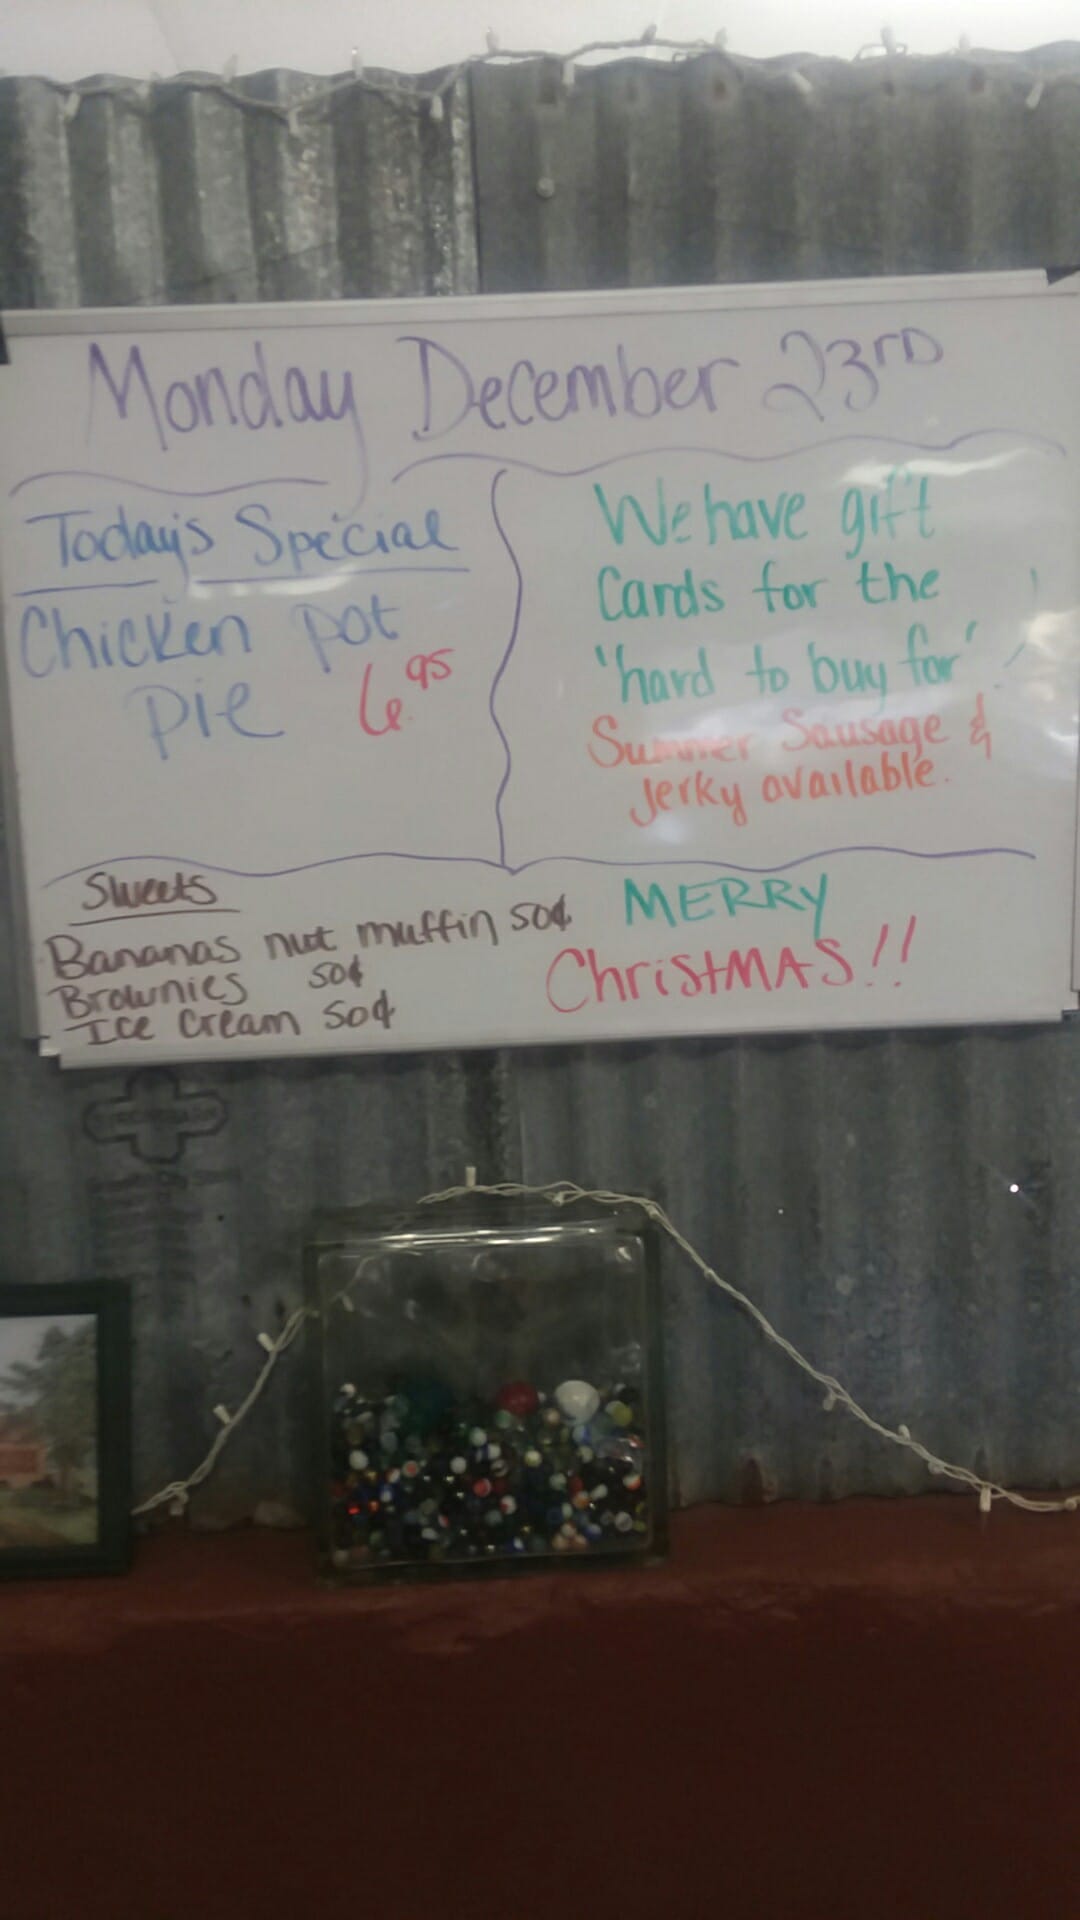 Monday December 23rD
Today's Special
Chicken pot
pie 6.95
We have gift
Cards for the
"hard to buy for"!
Summer Sausage &
Jerky available.
Sweets
Bananas nut muffin 50¢
Brownies 50¢
Ice Cream 50¢
MERRY
ChristMAS!!